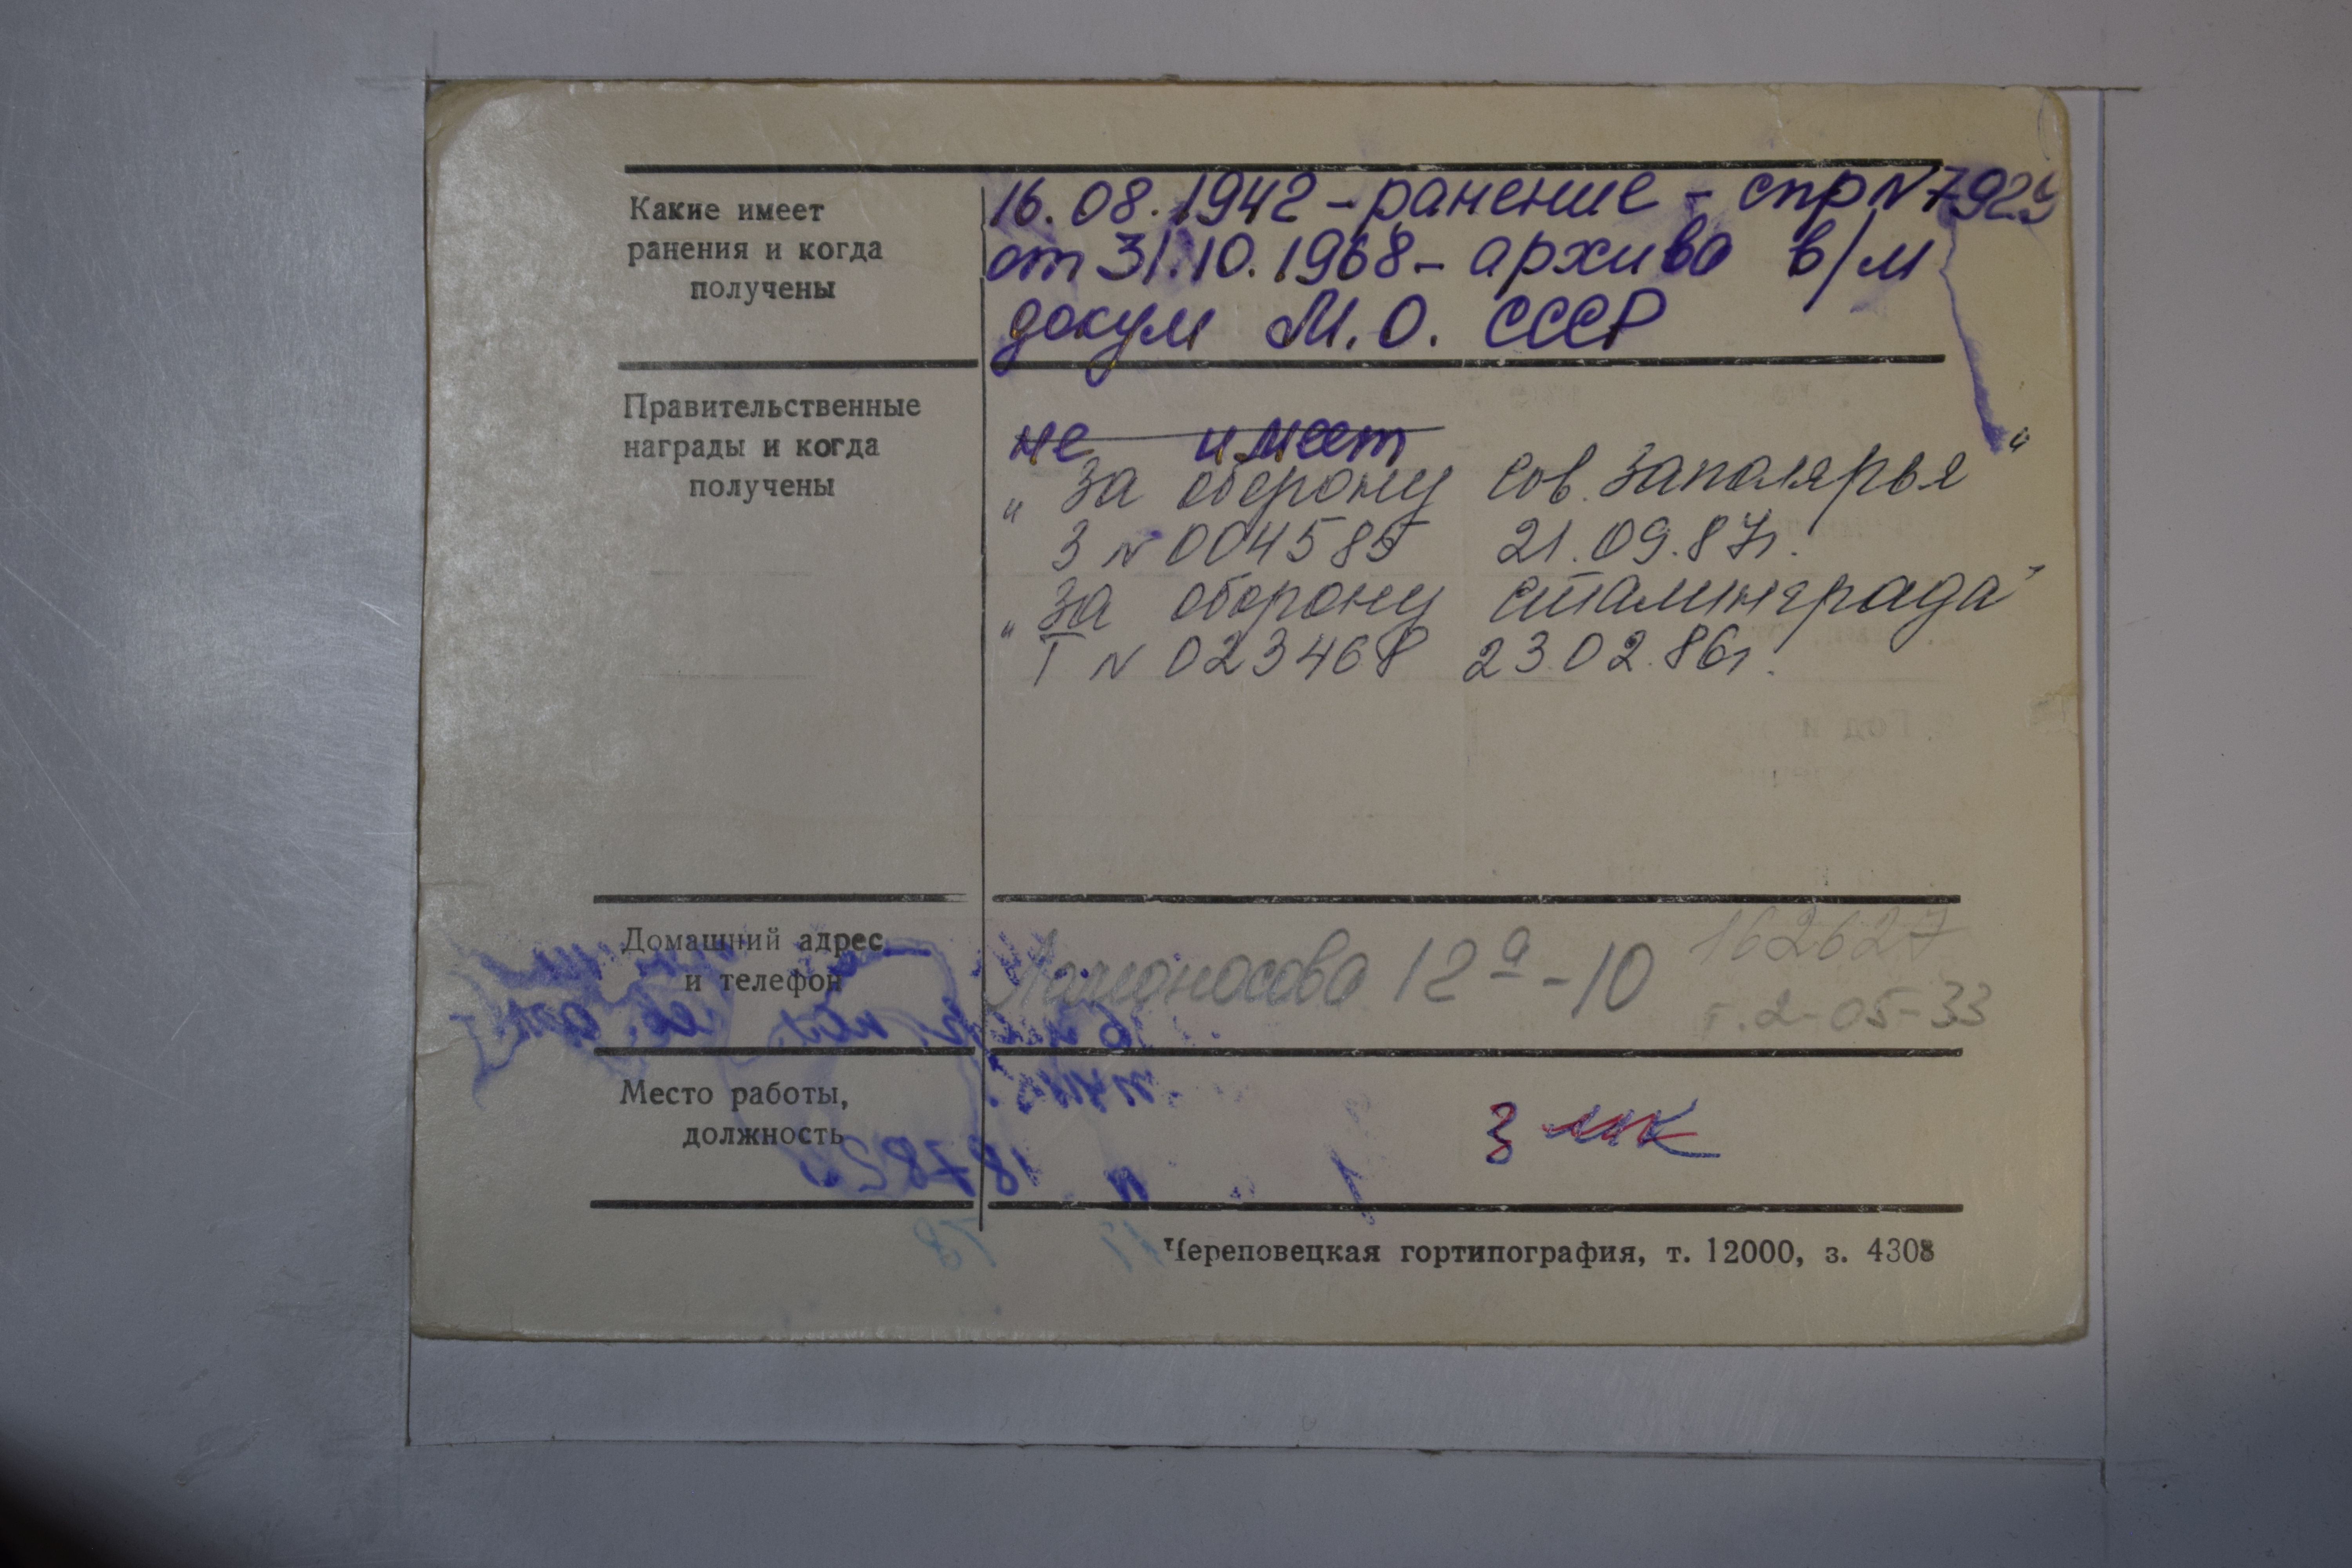 Какие имеет
ранения и когда
получены
16.08.1942 - ранение - спр N 7929
от 31.10.1968 - архива в/м
докум М.О. СССР
Правительственные
награды и когда
получены
не имеет
„За оборону Сов. Заполярья“
З N 004585 21.09.87г.
„За оборону Сталинграда“
Т N 023468 23.02.86г.
Домашний адрес
и телефон
Ломоносова 12а-10
162627
т. 2-05-33
Место работы,
должность
Череповецкая гортипография, т. 12000, з. 4308